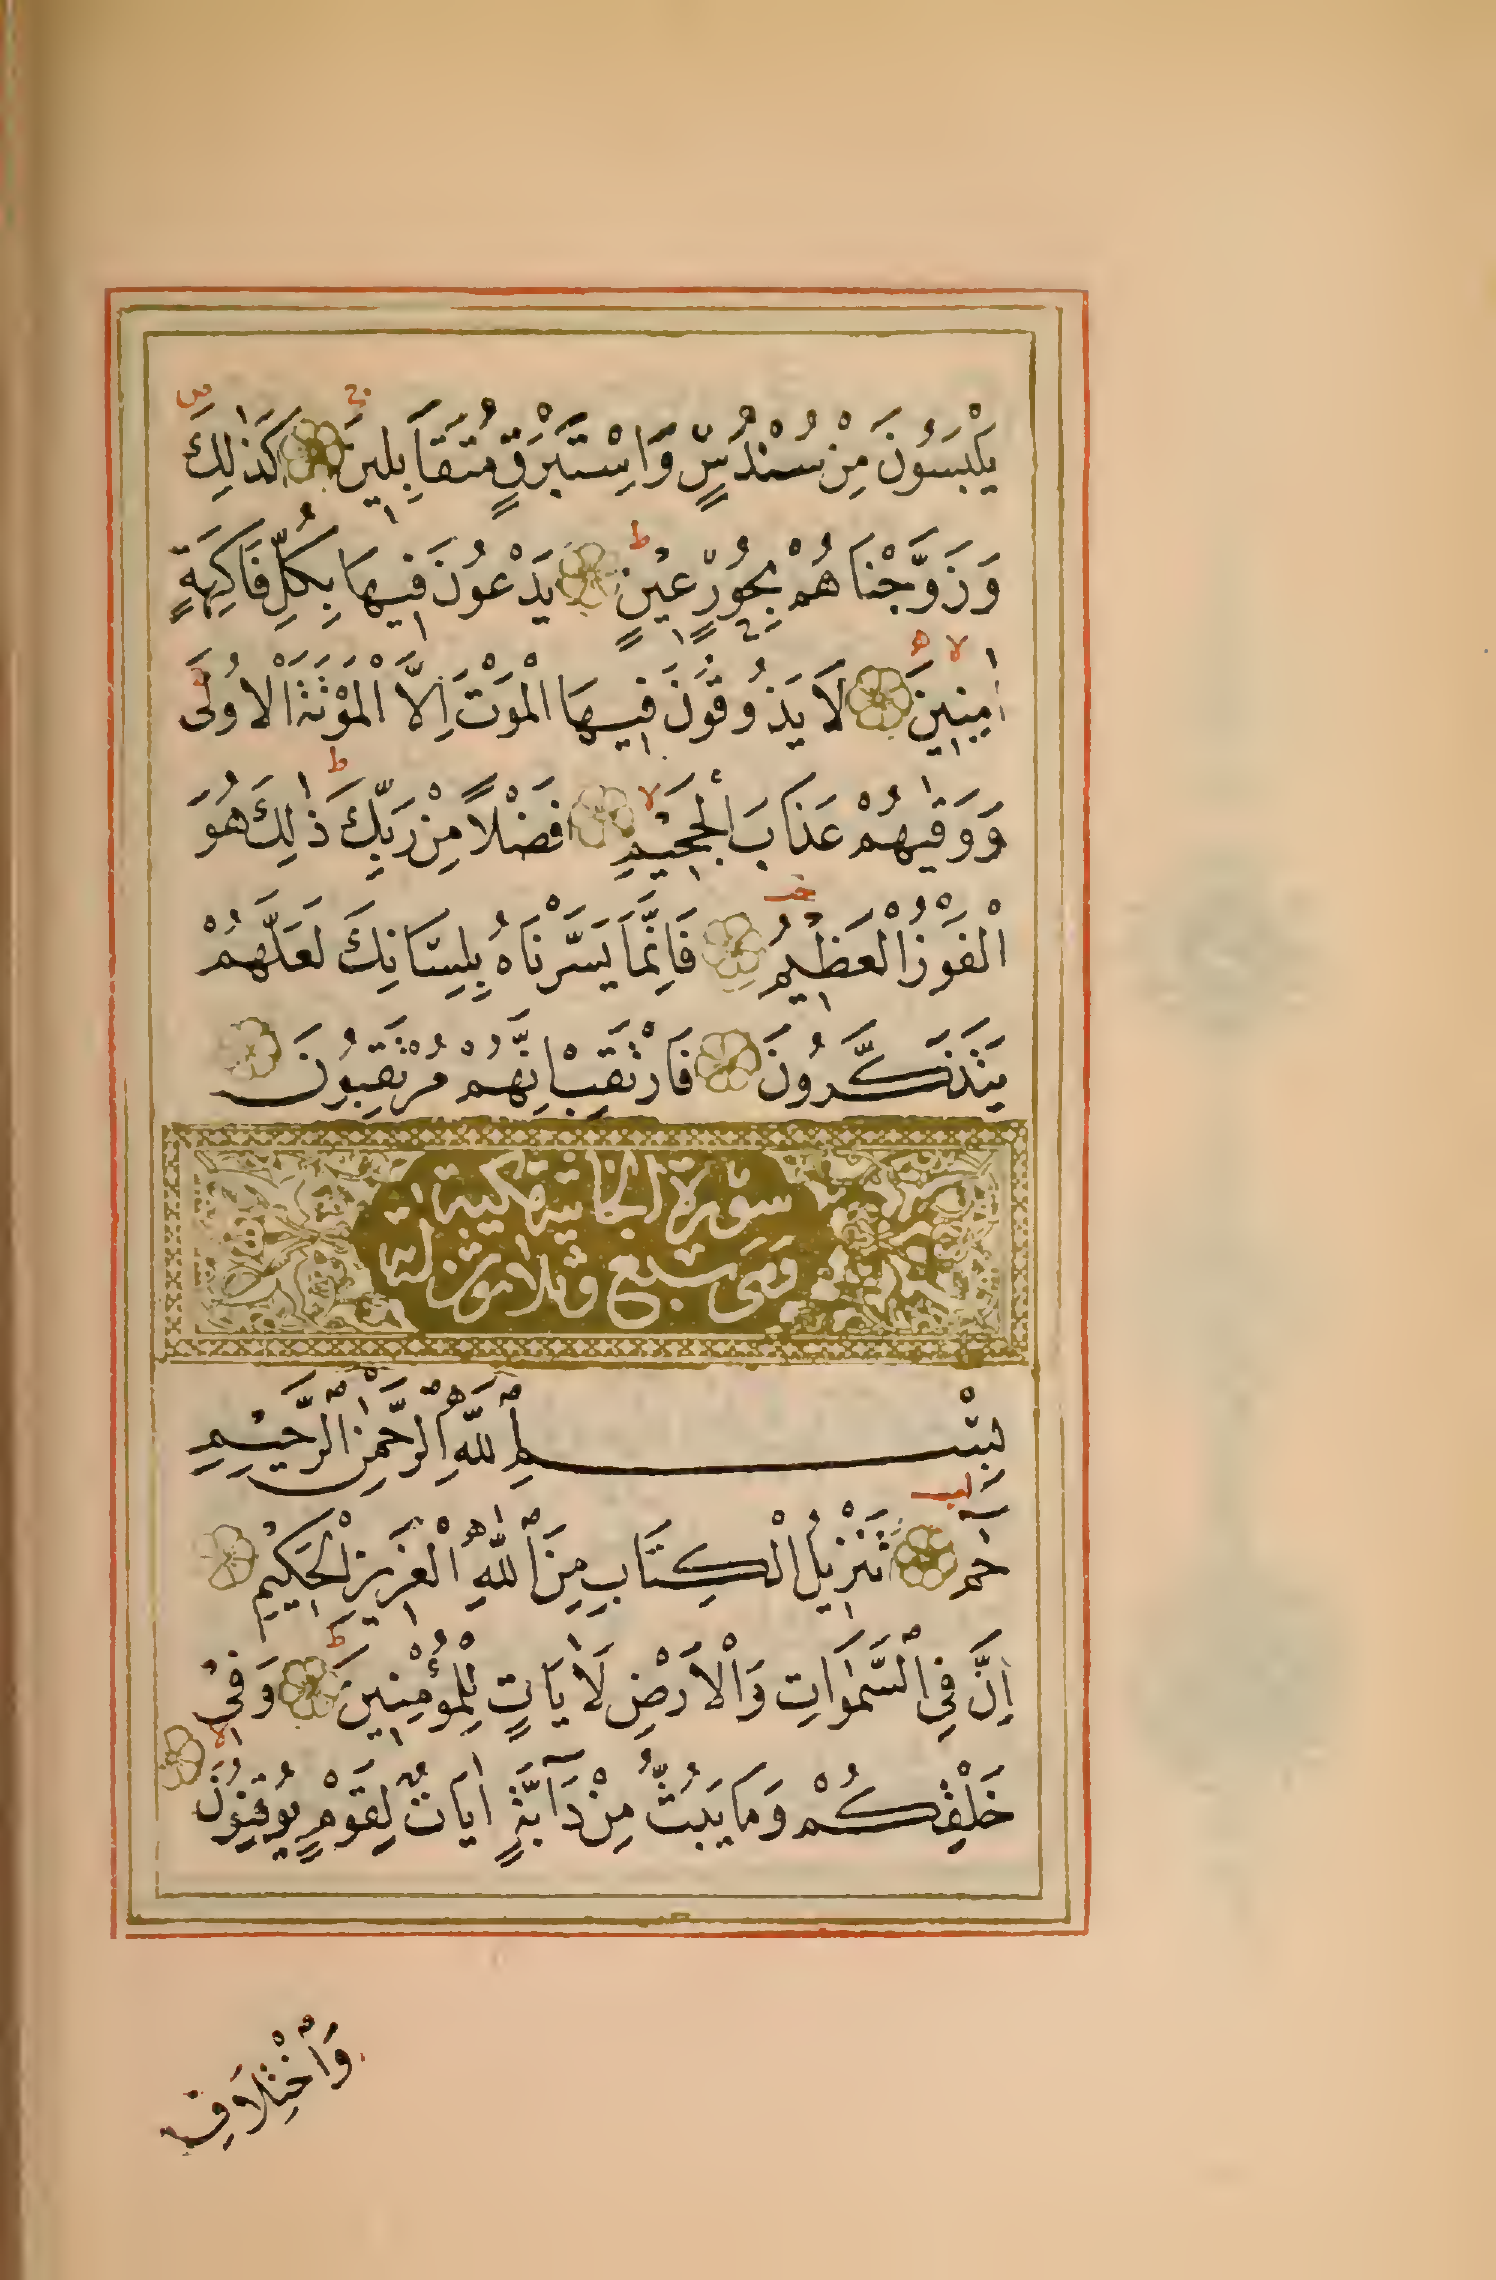 يَلْبَسُونَ مِنْ سُنْدُسٍ وَاِسْتَبْرَقٍ مُتَقَابِلِينَ كَذٰلِكَ
وَزَوَّجْنَاهُمْ بِحُورٍ عِينٍ يَدْعُونَ فِيهَا بِكُلِّ فَاكِهَةٍ
اٰمِنِينَ لَا يَذُوقُونَ فِيهَا الْمَوْتَ اِلَّا الْمَوْتَةَ الْاُولٰى
وَوَقٰيهُمْ عَذَابَ الْجَحِيمِ فَضْلًا مِنْ رَبِّكَ ذٰلِكَ هُوَ
الْفَوْزُ الْعَظِيمُ فَاِنَّمَا يَسَّرْنَاهُ بِلِسَانِكَ لَعَلَّهُمْ
يَتَذَكَّرُونَ فَارْتَقِبْ اِنَّهُمْ مُرْتَقِبُونَ
سورة الجاثية مكية
وهى سبع وثلاثون اية
بِسْمِ اللّٰهِ الرَّحْمٰنِ الرَّحِيمِ
حٰمٓ تَنْزِيلُ الْكِتَابِ مِنَ اللّٰهِ الْعَزِيزِ الْحَكِيمِ
اِنَّ فِي السَّمٰوَاتِ وَالْاَرْضِ لَاٰيَاتٍ لِلْمُؤْمِنِينَ وَفِي
خَلْقِكُمْ وَمَا يَبُثُّ مِنْ دَآبَّةٍ اٰيَاتٌ لِقَوْمٍ يُوقِنُونَ
وَاخْتِلَافِ